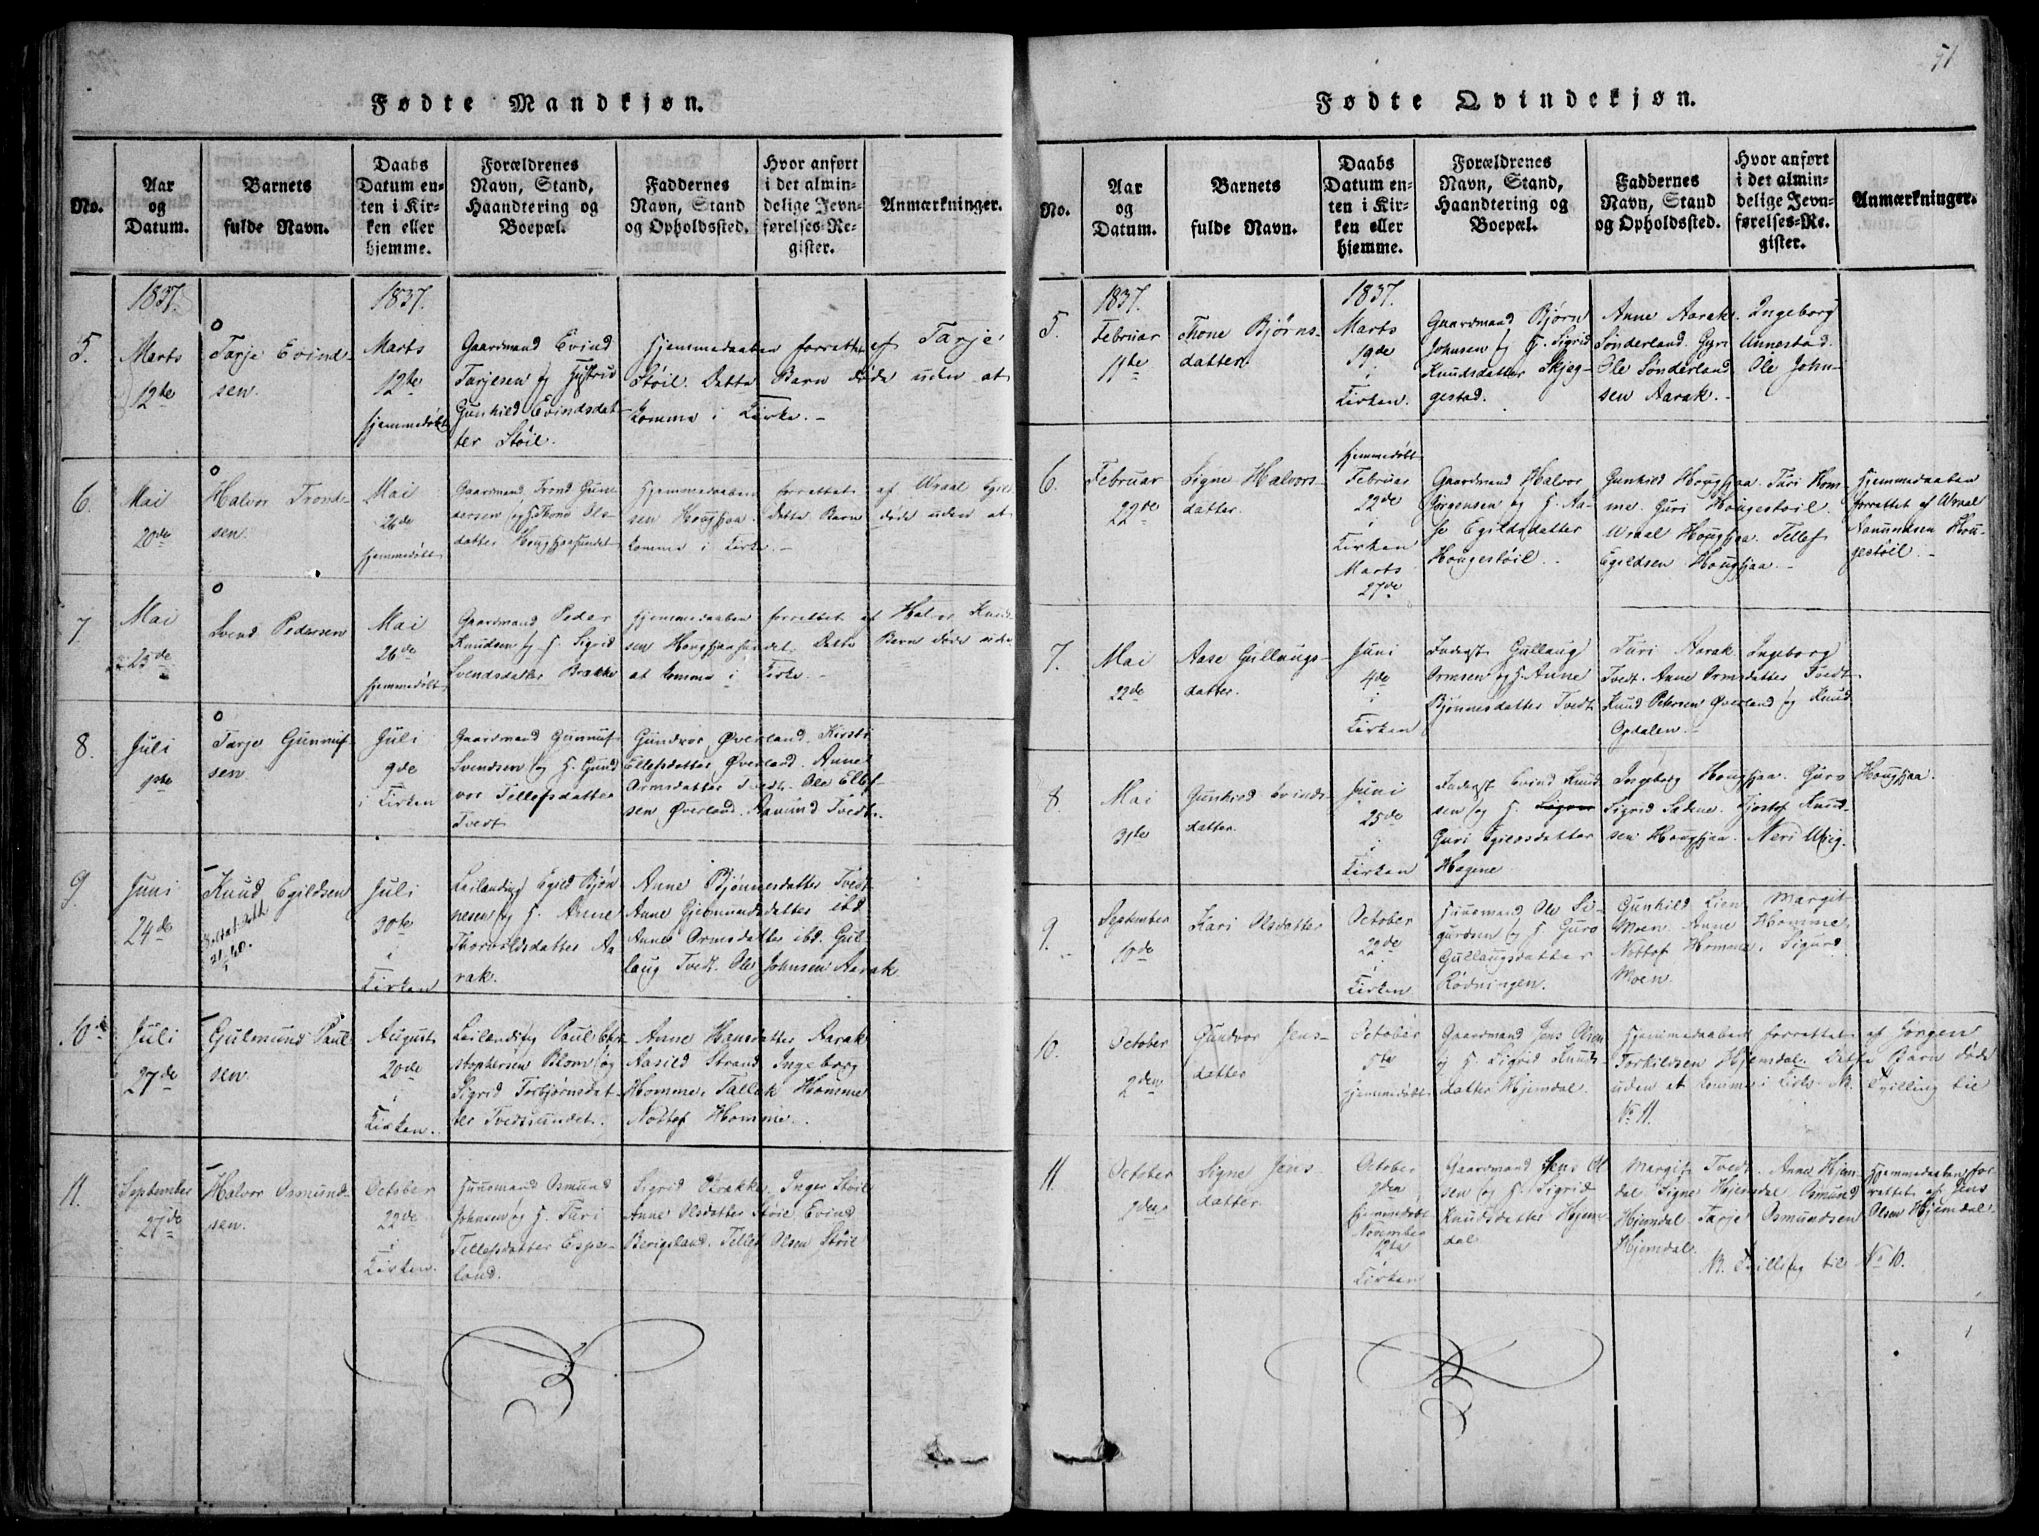 Fødte Mandkjøn.
No.
Aar
og
Datum.
Barnets
fulde Navn.
Daabs
Datum en-
ten i Kir-
ken eller
hjemme.
Forældrenes
Navn, Stand,
Haandtering og
Boepæl.
Faddernes
Navn, Stand
og Opholdssted.
Hvor anført
i det almin-
delige Jevn-
førelses-Re-
gister.
Anmærkninger.
1837.
1837.
5.
Marts
12te
Tarje Evind-
sen.
Marts
12te
hjemmedøbt
Gaardmand Evind
Tarjesen og Hustrue
Gunhild Evindsdat-
ter Støil.
Hjemmedaaben forrettet af Tarje
Støil. Dette Barn døde uden at
komme i Kirke.-
6.
Mai
20de
Halvor Trond-
sen.
Mai
26de
hjemmedøbt
Gaardmand Trond Gun-
dersen og
datter Hougsjaasundet
Hjemmedaaben forrettet af Wraal Egild-
sen Hougsjaa. Dette Barn døde uden at
komme i Kirke.-
7.
Mai
23de
Svend Pedersen
Mai
26de
hjemmedøbt
Gaardmand Peder
Knudsen og H. Sigrid
Svendsdatter Brække
Hjemmedaaben forrettet af Halvor Knud-
sen Hougsjaasundet. Dette Barn døde uden
at komme i Kirke.-
8.
Juli
1ste
Tarje Gunnuf-
sen.
Juli
9de
i Kirken
Gaardmand Gunnuf
Svendsen og H. Gund-
vor Tellefsdatter
Tvedt
Gundvor Øverland. Kirsti
Ellefsdatter Øverland. Anne
Ormsdatter Tvedt. Ole Ellef-
sen Øverland. Aamund Tvedt.
9.
Juni
24de
Knud Egildsen
Juli
30te
i
Kirken
Leilending Egild Bjøn-
nesen og H. Anne
Thorvildsdatter Aa-
rak.
Anne Bjønnesdatter Tvedt
Anne Gjelmundsdatter ibd
Anne Ormsdatter ibd. Gul-
laug Tvedt. Ole Johnsen Aarak
10.
Juli
27de
Gulmund Paul-
sen.
August
20de
i
Kirken.
Leilending Paul Chri-
stophersen Blom og
Sigrid Torbjørnsdat-
ter Tvedtsundet.
Anne Hansdatter Aarak
Aasild Strand Ingeborg
Homme. Tallak Homme
Nottof Homme.
11.
September
27de
Halvor Osmund-
sen.
October
22de
i
Kirken.
Huusmand Osmund
Johnsen og H. Turi
Tellefsdatter Espe-
land.
Sigrid Brække. Inger Støil
Anne Olsdatter Støil Evind
Berigsland. Tellef Olsen Støil
51
Fødte Qvindekjøn.
No.
Aar
og
Datum.
Barnets
fulde Navn.
Daabs
Datum en-
ten i Kir-
ken eller
hjemme.
Forældrenes
Navn, Stand,
Haandtering og
Boepæl.
Faddernes
Navn, Stand
og Opholdssted.
Hvor anført
i det almin-
delige Jevn-
førelses-Re-
gister.
Anmærkninger.
1837.
1837.
5.
Februar
19te
Thone Bjørns-
datter.
Marts
19de
i
Kirken.
Gaardmand Bjørn
Johnsen og H. Sigrid
Knudsdatter Skjeg-
gestad.
Anne Aarak. Ingeborg
Sønderland. Gyri Annestad.
Ole Sønderland Ole John-
sen Aarak.-
6.
Februar
22de
Signe Halvors-
datter.
hjemmedøbt
Februar
22de
i
Kirken
Marts
27de
Gaardmand Halvor
Jørgensen og H. Aa-
se Egildsdatter
Hougestøil.-
Gunhild Hougsjaa. Turi Hom-
me. Guri Hougestøil.
Wraal Hougsjaa. Tellef
Egildsen Hougsjaa.-
Hjemmedaaben
forrettet af Wraal
Aamundsen Hou-
gestøil.-
7.
Mai
22de
Aase Gullaugs-
datter.
Juni
4de
i
Kirken
Inderst Gullaug
Ormsen og H. Anne
Bjønnesdatter Tvedt
Turi Aarak Ingeborg
Tvedt. Anne Ormsdatter Tvedt
Knud Petersen Øverland og Knud
Opdalen.-
8
Mai
31te
Gunhild Evinds-
datter.
Juni
25de
i
Kirken
Inderst Evind Knud-
sen og H.
Guri Egildsdatter
Hogene
Ingeborg Hougsjaa. Guro Hougsjaa.
Sigrid Sadene. Tjostof Knud-
sen Hougsjaa. Neri Wiig.
9.
September
Kari Olsdatter
October
22de
i
Kirken
Huusmand Ole Si-
gurdsen og H. Guro
Gullaugsdatter
Rødningen.
Gunhild Lien Margit
Moen. Anne Homme.
Nottof Homme. Sigurd
Moen.
10.
October
2den
Gundvor Jens-
datter
October
5te
hjemmedøbt
Gaardmand Jens Olsen
og H. Sigrid Knuds-
datter Hjemdal.
Hjemmedaaben forrettet af Jørgen
Torkildsen Hjemdal. Dette Barn døde
uden at komme i Kirke. NB. Tvilling til
No 11.
11.
October
2den
Signe Jens-
datter.
October
hjemmedøbt
November
12te
Kirken
Gaardmand Jens Ol-
sen og H. Sigrid
Knudsdatter Hjem-
dal.
Margit Tvedt. Anne Hjem-
dal. Signe Hjemdal. Osmund
Hjemdal. Tarje Osmundsen
Hjemdal.
NB. Tvilling til No 10.
Hjemmedaaben for-
rettet af Jens
Olsen Hjemdal.